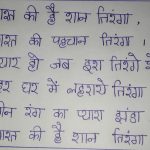 भारत की है शान तिरंगा,
भारत की पहचान तिरंगा।
प्यार हो जब इस तिरंगे से
हर घर में लहराये तिरंगा।
तीन रंग का प्यारा झंडा
भारत की है शान तिरंगा